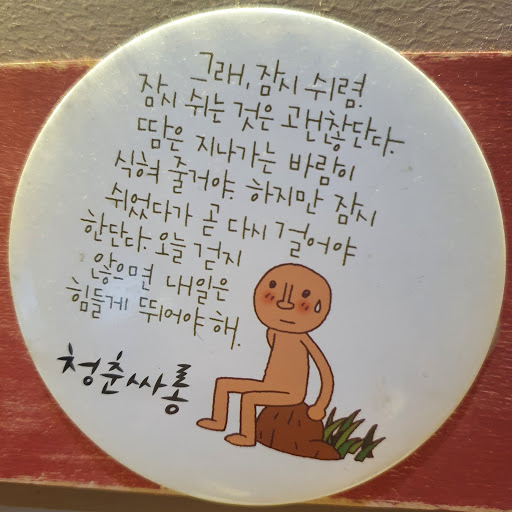 그래, 잠시 쉬렴.
잠시 쉬는 것은 괜찮단다.
땀은 지나가는 바람이
식혀 줄거야. 하지만 잠시
쉬었다가 곧 다시 걸어야
한단다. 오늘 걷지
않으면 내일은
힘들게 뛰어야 해.
청춘싸롱